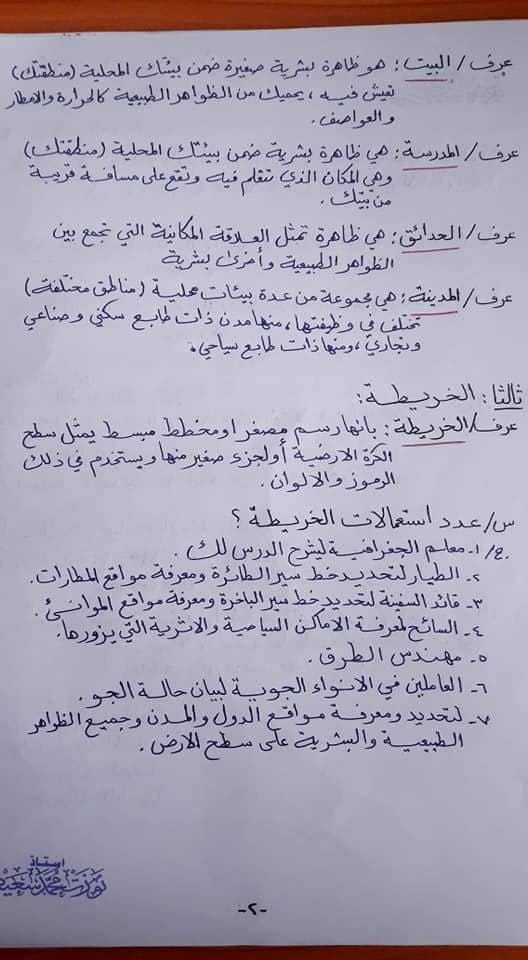 عرف/ البيت: هو ظاهرة بشرية صغيرة ضمن بيئتك المحلية (منطقتك)
تعيش فيه، يحميك من الظواهر الطبيعية كالحرارة والامطار
والعواصف.
عرف/ المدرسة: هي ظاهرة بشرية ضمن بيئتك المحلية (منطقتك)
وهي المكان الذي تتعلم فيه وتقع على مسافة قريبة
من بيتك.
عرف/ الحدائق: هي ظاهرة تمثل العلاقة المكانية التي تجمع بين
الظواهر الطبيعية وأخرى بشرية
عرف/ المدينة: هي مجموعة من عدة بيئات محلية (مناطق مختلفة)
تختلف في وظيفتها، منها مدن ذات طابع سكني وصناعي
وتجاري، ومنها ذات طابع سياحي.
ثالثا: الخريطة:
عرف/ الخريطة: بانها رسم مصغر او مخطط مبسط يمثل سطح
الكرة الارضية أو لجزء صغير منها ويستخدم في ذلك
الرموز والالوان.
س/ عدد استعمالات الخريطة؟
ج/ ١- معلم الجغرافية ليشرح الدرس لك.
٢- الطيار لتحديد خط سير الطائرة ومعرفة مواقع المطارات.
٣- قائد السفينة لتحديد خط سير الباخرة ومعرفة مواقع الموانئ.
٤- السائح لمعرفة الاماكن السياحية والاثرية التي يزورها.
٥- مهندس الطرق.
٦- العاملين في الانواء الجوية لبيان حالة الجو.
٧- لتحديد ومعرفة مواقع الدول والمدن وجميع الظواهر
الطبيعية والبشرية على سطح الارض.
استاذ
محمد سعيد
-٢-